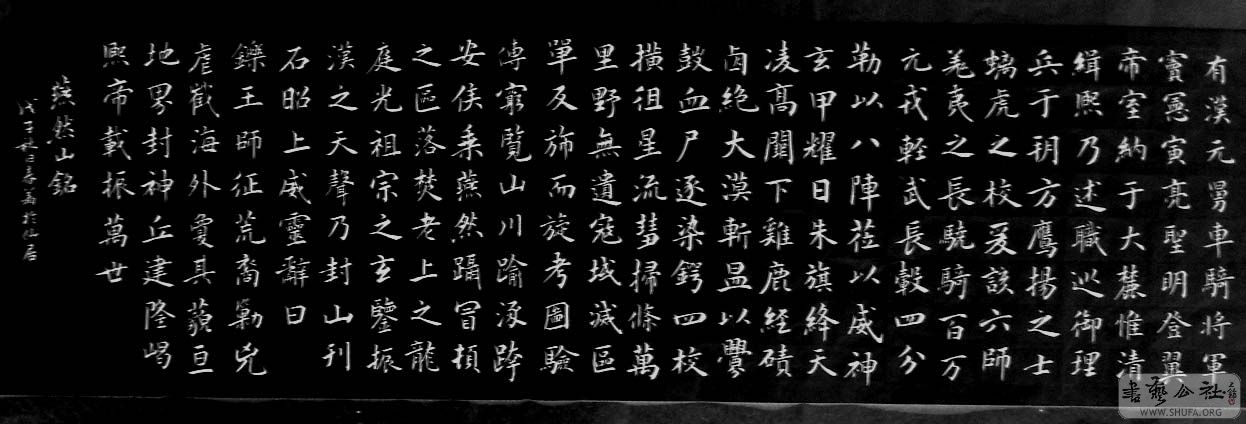 有漢元舅車騎将軍
竇憲寅亮聖明登翼
帝室納于大麓惟清
緝熙乃述職巡御理
兵于玥方鷹揚之士
螭虎之校爰該六師
羌夷之長驍騎百万
元戎軽武長轂四分
勒以八陣莅以威神
玄甲耀日朱旗絳天
凌高闕下雞鹿經磧
鹵絶大漠斬昷以釁
鼓血尸逐染鍔四校
横徂星流彗掃條萬
里野無遺寇域滅區
單反旆而旋考圖驗
傳窮覽山川踰涿跨
安侯乘燕然躡冒頓
之區落焚老上之龍
庭光祖宗之玄鑒振
漢之天聲乃封山刊
石昭上威靈辭曰
鑠王師征荒裔剿兇
虐截海外夐其藐亘
地界封神丘建隆嵑
熙帝載振萬世
燕然山銘
戊子秋日於仙居
書藝公社
WWW.SHUFA.ORG